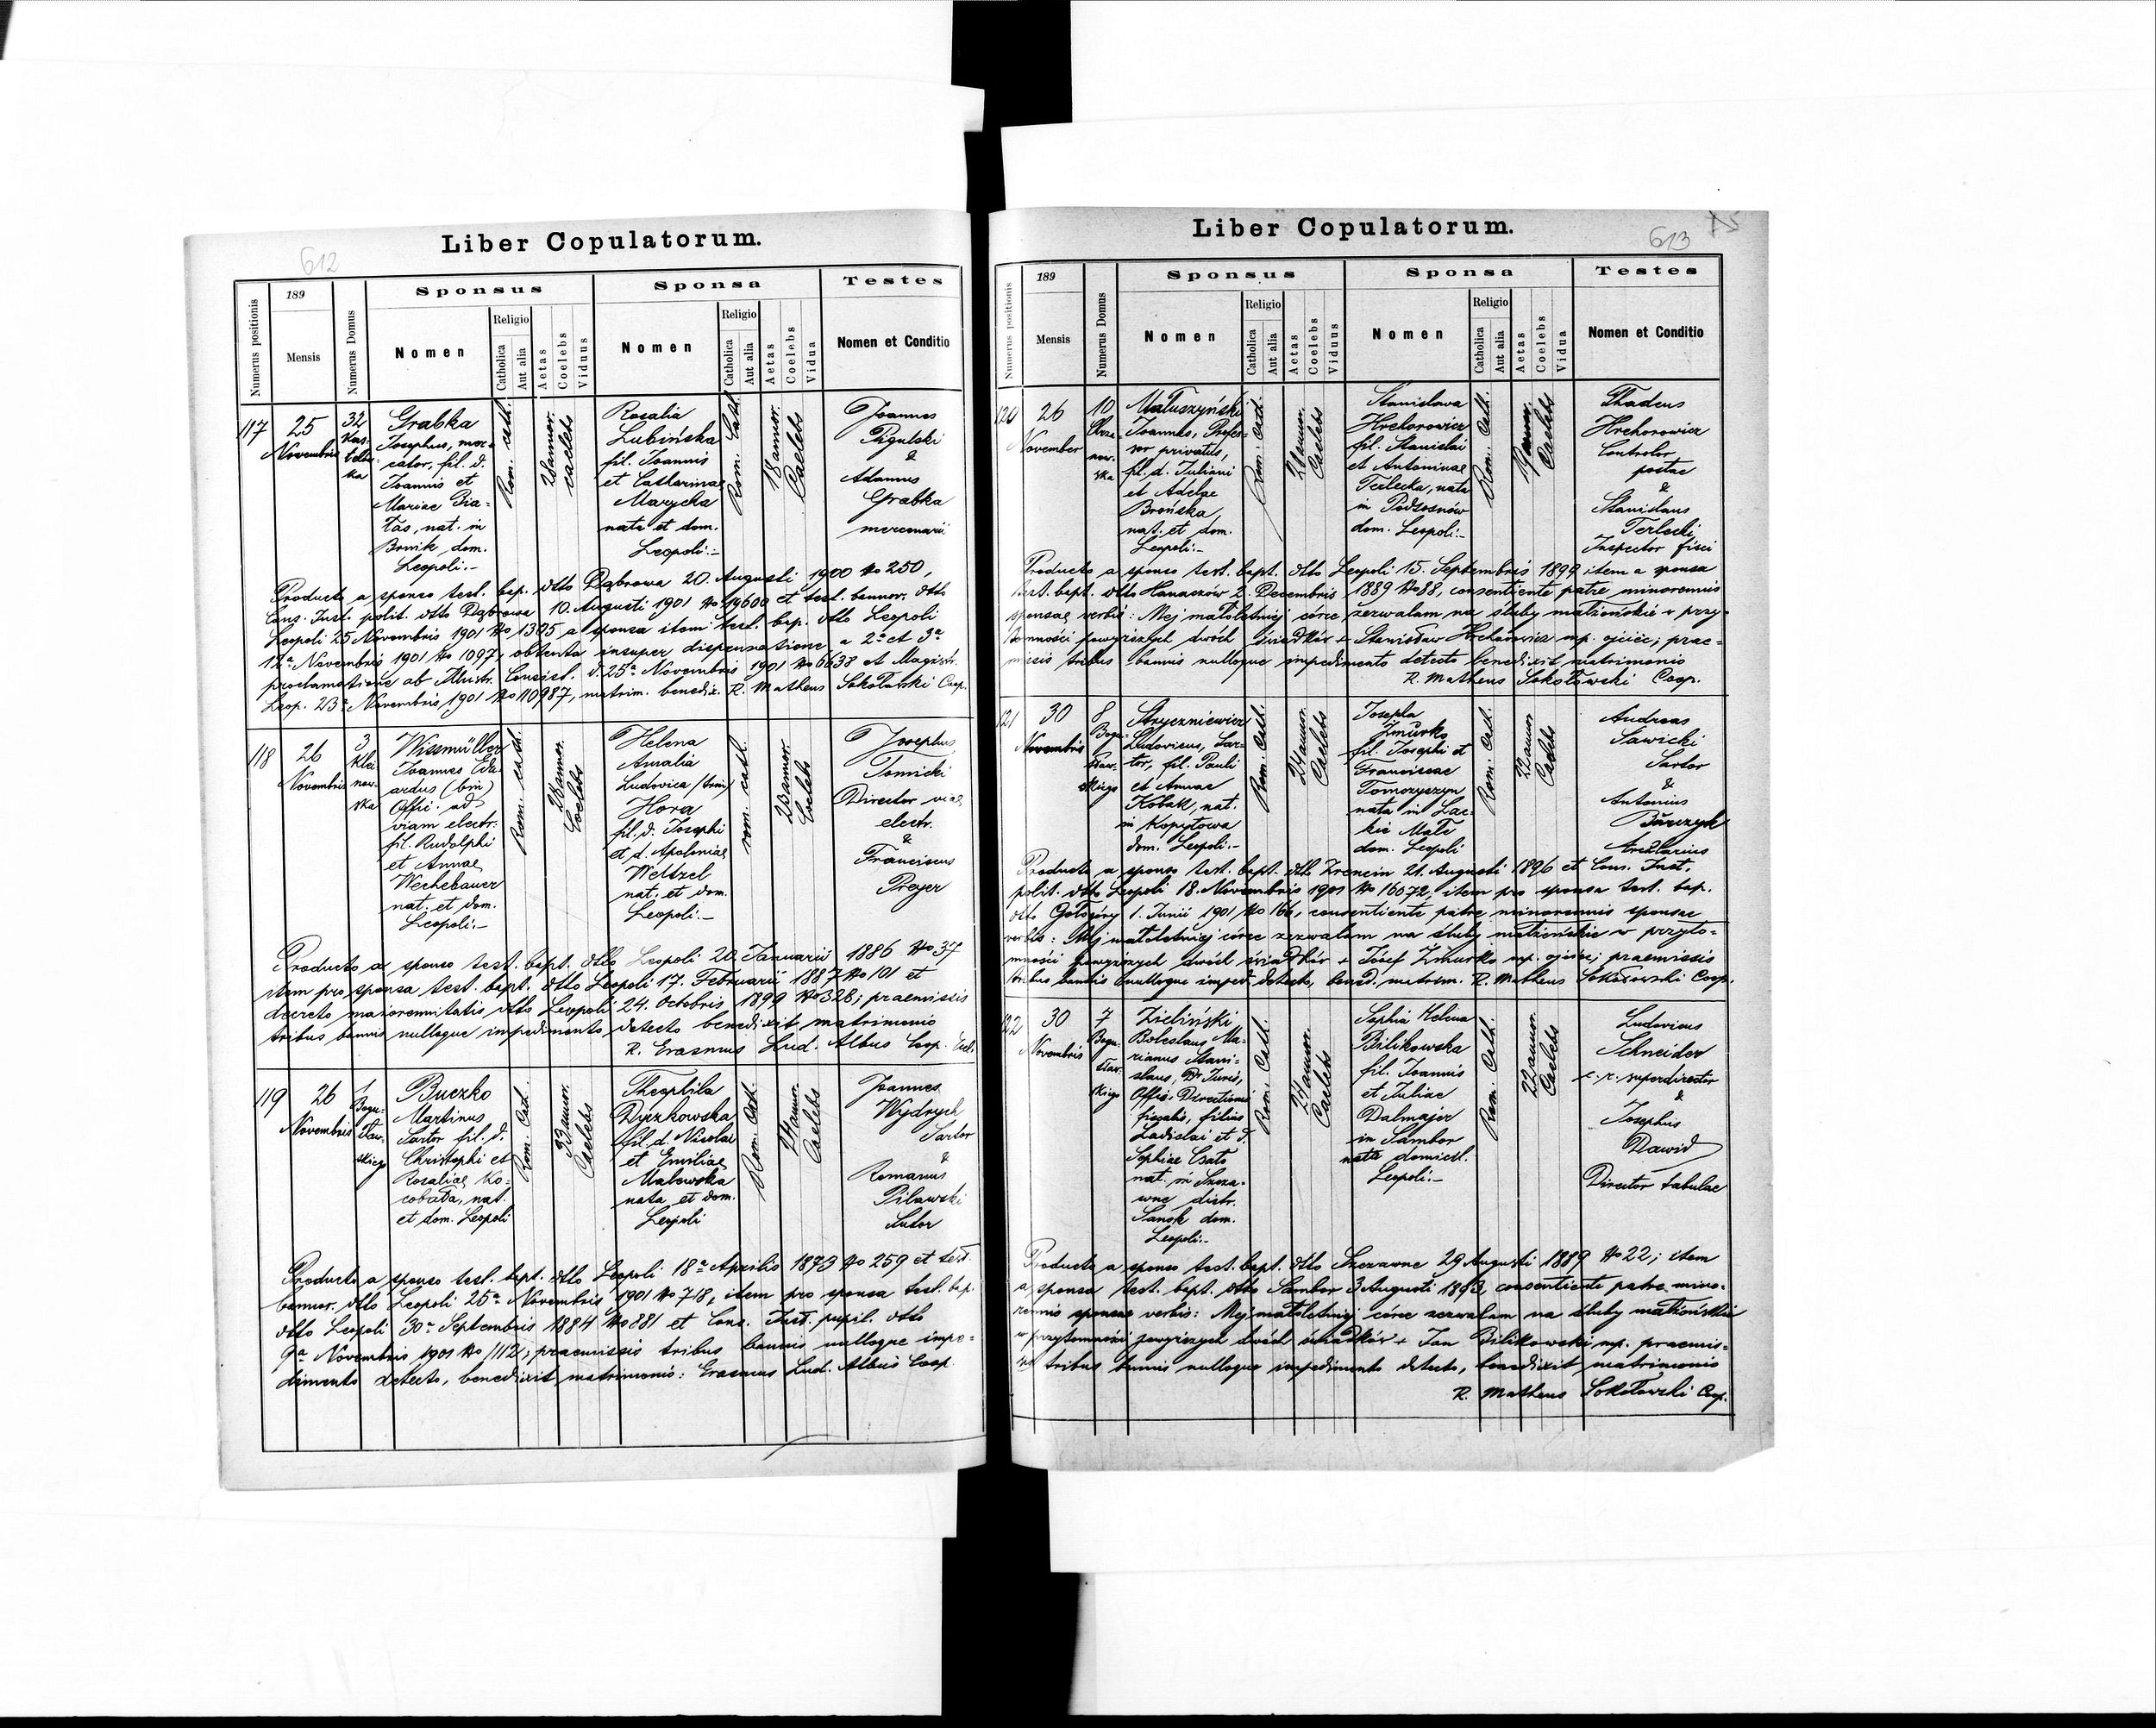 612
Liber Copulatorum.
Numerus positionis
189
Mensis
Numerus Domus
Sponsus
Nomen
Religio
Catholica
Aut alia
Aetas
Coelebs
Viduus
Sponsa
Nomen
Religio
Catholica
Aut alia
Aetas
Coelebs
Vidua
Testes
Nomen et Conditio
117
25
Novembris
32
Grabka
Josephus, mer-
cator, fil. d.
Joannis et
Mariae Bia-
łas, nat. in
Brnik dom.
Leopoli.-
Rom. cath.
28 annor.
caelebs
Rosalia
Lubińska
fil. Joannis
et Catharinae
Marycka
nata et dom.
Leopoli.-
Rom. Cath.
18 annor.
Caelebs
Joannes
Pigulski
&
Adamus
Grabka
mercenarii
Producto a sponso test. bap. dtto Dąbrowa 20. Augusti 1900 No 250,
Cons. Inst. polit. dtto Dąbrowa 10. Augusti 1901 No 19600 et test. bannor. dtto
Leopoli 25 Novembris 1901 No 1305 a sponsa item test. bap. dtto Leopoli
12a Novembris 1901 No 1097, obtenta insuper dispensatione a 2a et 3a
proclamatione ab Illustr. Consist. d. 25a Novembris 1901 No 6638 et Magistr.
Leop. 23a Novembris 1901 No 110987, matrim. benedix. R. Matheus Sokołowski Coop.
118
26
Novembris
3
Klei
now-
ska
Wissmüller
Joannes Edu
ardus (bin)
Offic. ad
viam electr.
fil. Rudolphi
et Annae
Wechebauer
nat. et dom.
Leopoli.-
Rom. cath.
28 annor.
Coelebs
Helena
Amalia
Ludovica (trin)
Hora
fil. d. Josephi
et d. Apoloniae
Weltzel
nat. et dom.
Leopoli.-
rom. cath.
23 annor.
Coelebs
Josephus
Tomicki
Director viae
electr.
&
Franciscus
Preyer
Producto a sponso test. bapt. dtto Leopoli 20. Januarii 1886 No 37
item pro sponsa test. bapt. dtto Leopoli 17. Februarii 1887 No 101 et
decreto maiorennitatis dtto Leopoli 24. Octobris 1899 No 328; praemissis
tribus bannis nulloque impedimento detecto benedixit matrimonio
R. Erasmus Lud. Albus Coop. Eccl.
119
26
Novembris
1
Bogu-
sław-
skiego
Buczko
Martinus
Sartor fil. d.
Christophi et
Rosaliae Ko-
cobała, nat.
et dom. Leopoli
Rom. Cath.
33 annor.
Caelebs
Theophila
Dyrkowska
fil. d. Nicolai
et Emiliae
Malowska
nata et dom.
Leopoli
Rom. Cath.
24 annor.
Caelebs
Joannes
Wydrych
Sartor
&
Romanus
Pilawski
Sutor
Producto a sponso test. bapt. dtto Leopoli 18a Aprilis 1873 No 259 et test.
bannor. dtto Leopoli 25a Novembris 1901 No 718, item pro sponsa test. bap.
dtto Leopoli 30a Septembris 1884 No 881 et Cons. Inst. pupil. dtto
9a Novembris 1901 No 1112; praemissis tribus bannis nulloque impe-
dimento detecto, benedixit matrimonio: Erasmus Lud. Albus Coop.
613
Liber Copulatorum.
Numerus positionis
189
Mensis
Numerus Domus
Sponsus
Nomen
Religio
Catholica
Aut alia
Aetas
Coelebs
Viduus
Sponsa
Nomen
Religio
Catholica
Aut alia
Aetas
Coelebs
Vidua
Testes
Nomen et Conditio
120
26
November
10
Matuszyński
Joannes, Profes-
sor privatus,
fil. d. Juliani
et Adelae
Brońska,
nat. et dom.
Leopoli.-
Rom. Cath.
annor.
Caelebs
Stanislava
Hrehorowicz
fil. Stanislai
et Antoninae
Terlecka, nata
in Podsosnów
dom. Leopoli.-
Rom. Cath.
annor.
Caelebs
Thadeus
Hrehorowicz
Controlor
postae
&
Stanislaus
Terlecki
Inspector fisci
Producto a sponso test. bapt. dtto Leopoli 15. Septembris 1899 item a sponsa
test. bapt. dtto Hanaczów 2. Decembris 1889 No 88, consentiente patre minorennis
sponsae verbis: Mej małoletniej córce zezwalam na śluby małżeńskie w przy-
tomności powyższych dwóch świadków + Stanisław Hrehorowicz mp. ojciec; prae-
missis tribus bannis nulloque impedimento detecto benedixit matrimonio
R. Matheus Sokołowski Coop.
121
30
Novembris
8
Bogu-
sław-
skiego
Stryczniewicz
Ludovicus, Sar-
tor, fil. Pauli
et Annae
Kobak, nat.
in Kopytowa
dom. Leopoli.-
Rom. Cath.
24 annor.
Caelebs
Josepha
Żmurko
fil. Josephi et
Franciscae
Tomczyszyn
nata in Lac-
kie Małe
dom. Leopoli
Rom. Cath.
22 annor.
Caelebs
Andreas
Sawicki
Sartor
&
Antonius
Burczyk
Producto a sponso test. bapt. dtto Zrencin 21. Augusti 1896 et Cons. Inst.
polit. dtto Leopoli 18. Novembris 1901 No 16072, item pro sponsa test. bap.
dtto Gołogóry 1. Junii 1901 No 166, consentiente patre minorennis sponsae
verbis: Mej małoletniej córce zezwalam na śluby małżeńskie w przyto-
mności powyższych dwóch świadków + Józef Żmurko mp. ojciec; praemissis
tribus bannis nulloque imped. detecto, bened. matrim. R. Matheus Sokołowski Coop.
122
30
Novembris
7
Bogu-
sław-
skiego
Zieliński
Boleslaus Ma-
rianus Stani-
slaus, Dr Juris,
Offic. Directionis
fiscalis, filius
Ladislai et d.
Sophiae Csato
nat. in Szcza-
wne distr.
Sanok dom.
Leopoli.-
Rom. Cath.
annor.
Caelebs
Sophia Helena
Bilikowska
fil. Joannis
et Juliae
Dalmajer
in Sambor
nata domicil.
Leopoli.-
Rom. Cath.
22 annor.
Caelebs
Ludovicus
Schneider
c. r. superdirector
&
Josephus
Dawid
Director tabulae
Producto a sponso test. bapt. dtto Szczawne 29 Augusti 1889 No 22; item
a sponsa test. bapt. dtto Sambor 3 Augusti 1893, consentiente patre mino-
rennis sponsae verbis: Mej małoletniej córce zezwalam na śluby małżeńskie
w przytomności powyższych dwóch świadków + Jan Bilikowski mp. praemis-
sis tribus bannis nulloque impedimento detecto, benedixit matrimonio
R. Matheus Sokołowski Coop.